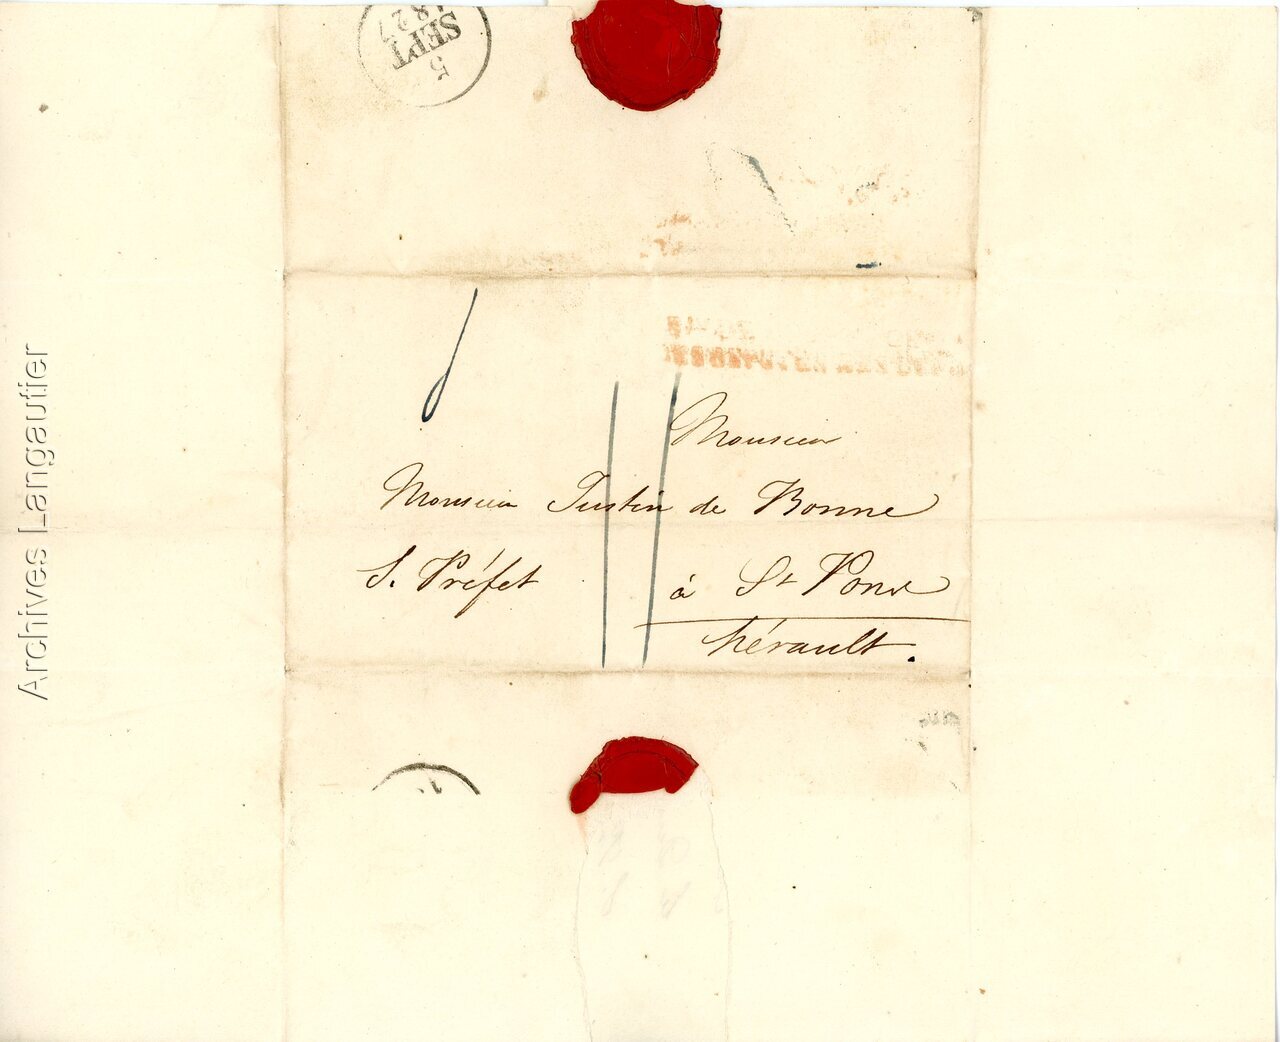 5
SEPT
1827
Monsieur
Monsieur Justin de Bonne
S. Préfet à St Pons
hérault.
Archives Langautier